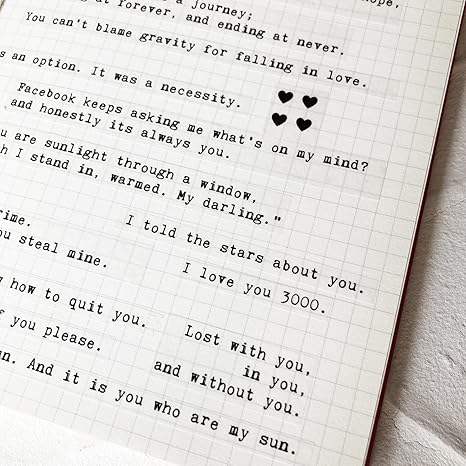 a journey;
at forever, and ending at never.
You can't blame gravity for falling in love.
s an option. It was a necessity.
Facebook keeps asking me what's on my mind?
and honestly its always you.
u are sunlight through a window,
h I stand in, warmed. My darling."
I told the stars about you.
rime.
ou steal mine.
I love you 3000.
how to quit you.
f you please.
Lost with you,
in you,
and without you.
n. And it is you who are my sun.